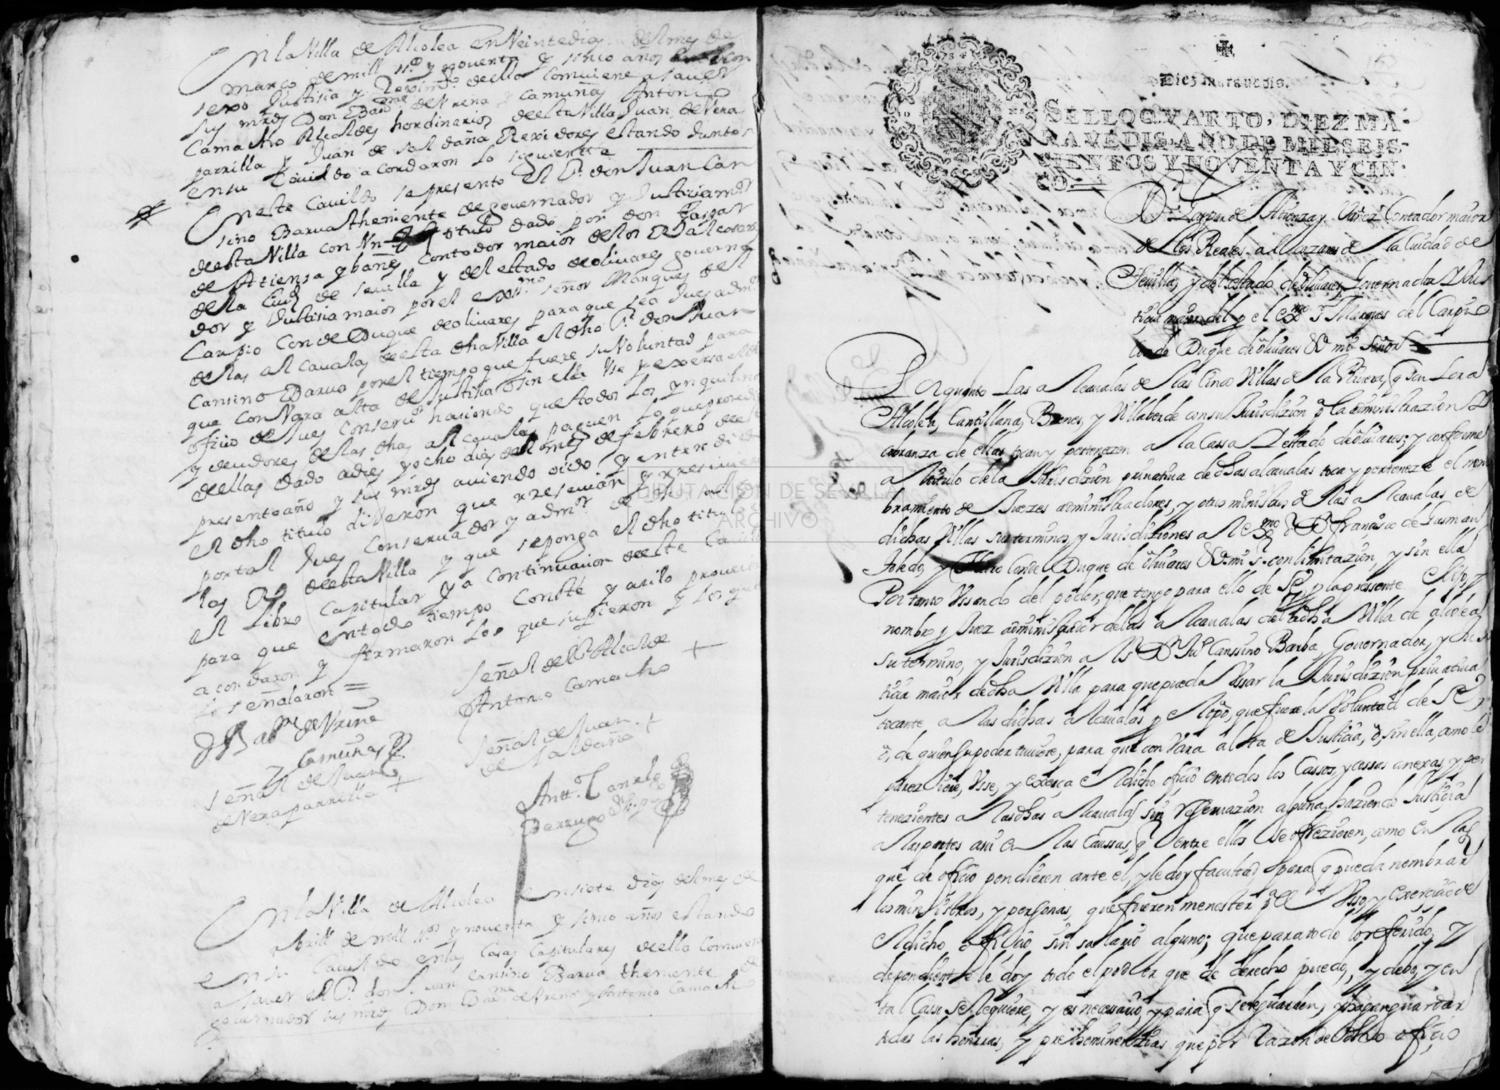 En la Villa de Alcolea en Veinte dias del mes de
março de mill sisº y noventa y sinco años
sexo Justisia y Reximº de ella Conviene a saver
sus mrds Don Barme de Vrena y Camuñas Antonio
Camacho Alcaldes hordinarios de esta Villa Juan de Vera
parrilla y Juan de saldaña Rexidores estando Juntos
en su Cavildo acordaron lo siguiente
En este Cavildo se presento el Sr. don Juan Can
sino Barva theniente de governador y Justisia mor
de esta Villa con Vn titulo dado por don Gaspar
de Atiensa y bañes Contador maior de los Rs Alcasares
de la Ciud de Sevilla y del estado de olivares governa
dor y Justisia maior por el exmo señor Marques del
Carpio Conde Duque de olivares para que sea Jues adm
de las alcavalas de esta dha Villa el dho Sr. don Juan
Cansino Barvo por el tiempo que fuere su Voluntad para
que con Vara alta de Justisia o sin ella Vse y exersa el
ofisio de Jues Conserv haciendo que todos los ynquilinos
y deudores de las dhas alcavalas paguen lo que prosede
de ellas dado a dies y ocho dias del mes de febrero de este
presente año y sus mrds aviendo oido y entendido
el dho titulo dijeron que rresevian y rresivieron
por tal Jues Conservador y admor de
las de esta Villa y que se ponga el dho titulo
al libro Capitular y a continuacion de este Cavildo
para que en todo tiempo Conste y asilo proveieron
acordaron y firmaron los que supieron y los que
lo señalaron =
señal del Sr. Alcalde
Antonio Camacho
D Barme de Vreña
y Camuñas
señal de Juan
de saldaña
señal de Juan
de Vera parrilla
Antt. Canalo
Barrugo
En la Villa de Alcolea en siete dias del mes de
Abrill de mill sisº y noventa y sinco años estando
en su Cavildo en las Casas Capitulares de ella Conviene
a saver el Sr. don Juan Cansino Barva theniente de
governador sus mrds Don Barme de Vrena y Antonio Camacho
DIPUTACIÓN DE SEVILLA
ARCHIVO
Diez maravedis.
SELLO QVARTO, DIEZ MA-
RAVEDIS, AÑO DE MIL SEIS-
CIENTOS Y NOVENTA Y CIN-
CO.
Dn Gaspar de Atienza y Vañez Contador maior
de los Reales alcazares de la Ciudad de
Sevilla, y del estado de olivares, Governador y Jus
tizia maior del por el exmo Sr Marques del Carpio
Conde Duque de olivares &ª mi Señor
Por quanto las alcavalas de las Cinco Villas de la Rivera, q son Lora
Alcolea, Cantillana, Brenes, y Villaverde con su Jurisdizion o la administrazion y
cobranza de ellas tocan y pertenezen a la cassa y estado de olivares; y conforme
a titulo de la Jurisdizion privativa de dhas alcavalas toca y perteneze el nom
bramiento de Juezes administradores, y otros ministros de las alcavalas de
dichas Villas sus terminos, y Jurisdiziones al exmo Sr Dn franco de Gusman
Conde Duque de olivares &ª mi Sr con limitazion, y sin ella
Por tanto Vsando del poder, que tengo para ello de Se por la presente elijo, y
nombro Juez administrador de las alcavalas de la dha Villa de alcolea
su termino, y Jurisdizion a Vs Dn Jun Canssino Barba, Governador, y Jus
tizia maior de dha Villa para que pueda Vssar la Jurisdizion privativa
tocante a las dichas alcavalas por el tiempo, que fuere la Voluntad de Se
o, de quien su poder tuviere, para que con Vara alta de Justicia, o, sin ella, como le
pareziere, Vsse, y exersa el dicho oficio en todos los Cassos, y cossas anexas, y per
tenezientes a las dhas alcavalas sin reservazion alguna, haziendo Justicia
a las partes assi en las Caussas, q entre ellos se ofrezieren, como en las
que de oficio pendieren ante el y le doy facultad para q pueda nombrar
los ministros, y personas, que fueren menester pa el Vso, y exercicio de
el dicho oficio sin salario alguno; que para todo lo referido, y
dependiente le doy todo el poder que de derecho puedo, y debo, y en
tal Casso se requiere, y es necesario, y para q se le guarden, y hagan guardar
todas las honras, y preheminenzias que por razon de dicho oficio